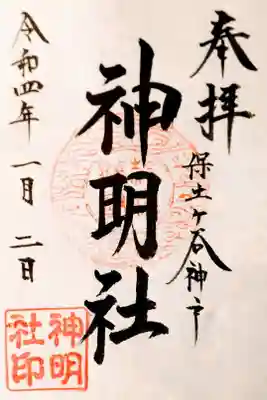 奉拝
保土ケ谷神戸
神明社
令和四年一月二日
神明
社印